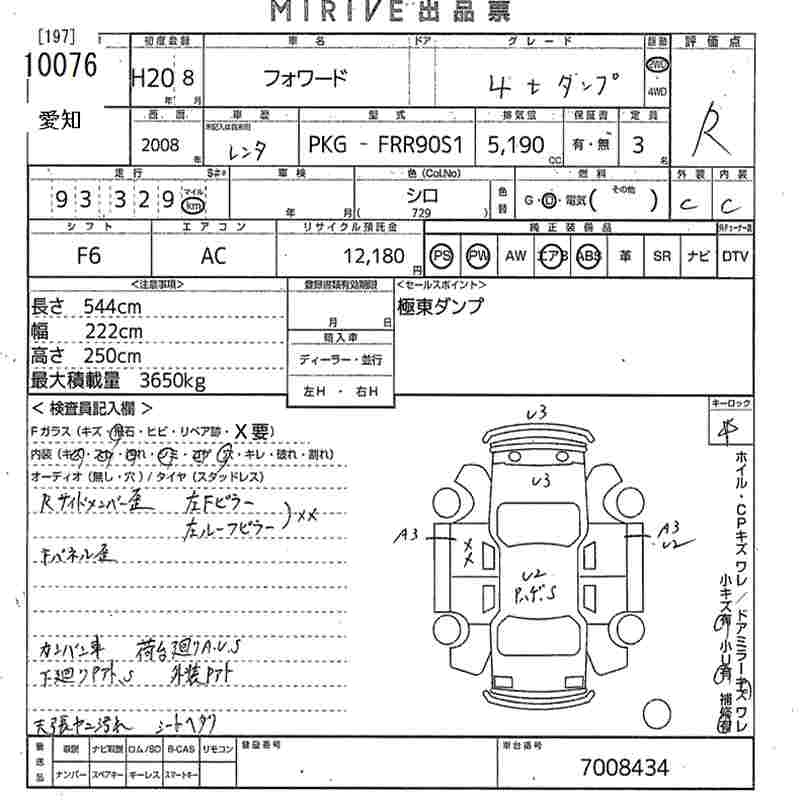 MIRIVE 出品票
[197]
10076
愛知
初度登録 車名 ドア グレード 駆動 評価点
H20 年 8 月 フォワード 4tダンプ 2WD 4WD R
西暦 車歴 型式 排気量 保証書 定員
2008 年 未記入は自家用 レンタ PKG - FRR90S1 5,190 CC 有・無 3 名
走行 S## 車検 色 (Col.No) 燃料 外装 内装
93 329 マイル km 年 月 シロ ( 729 ) 色替 G・D・電気 ( その他 ) C C
シフト エアコン リサイクル預託金 純正装備品
F6 AC 12,180 円 PS PW AW エアB ABS 革 SR ナビ DTV
<注意事項> 登録書類有効期限 <セールスポイント>
長さ 544cm 月 日 極東ダンプ
幅 222cm 輸入車
高さ 250cm ディーラー・並行
最大積載量 3650kg 左H ・ 右H
< 検査員記入欄 > キーロック
Fガラス (キズ・飛石・ヒビ・リペア跡・X要)
オーディオ (無し・穴) / タイヤ (スタッドレス)
Rサイドメンバー歪 左Fピラー
左ルーフピラー ) XX
Fパネル歪
カンバン車 荷台廻りA.U.S
下廻りPアト.S 外装Pアト
天張ヤニ汚れ シートヘタリ
U3
U3
A3
XX
U2
P.ハゲ.S
A3
U2
ホイル・CPキズ ワレ / ドアミラーキズ ワレ
小キズ有 小U有 補修有
後送品 取説 ナビ取説 ロム/SD B-CAS リモコン 登録番号 車台番号
ナンバー スペアキー キーレス スマートキー 7008434